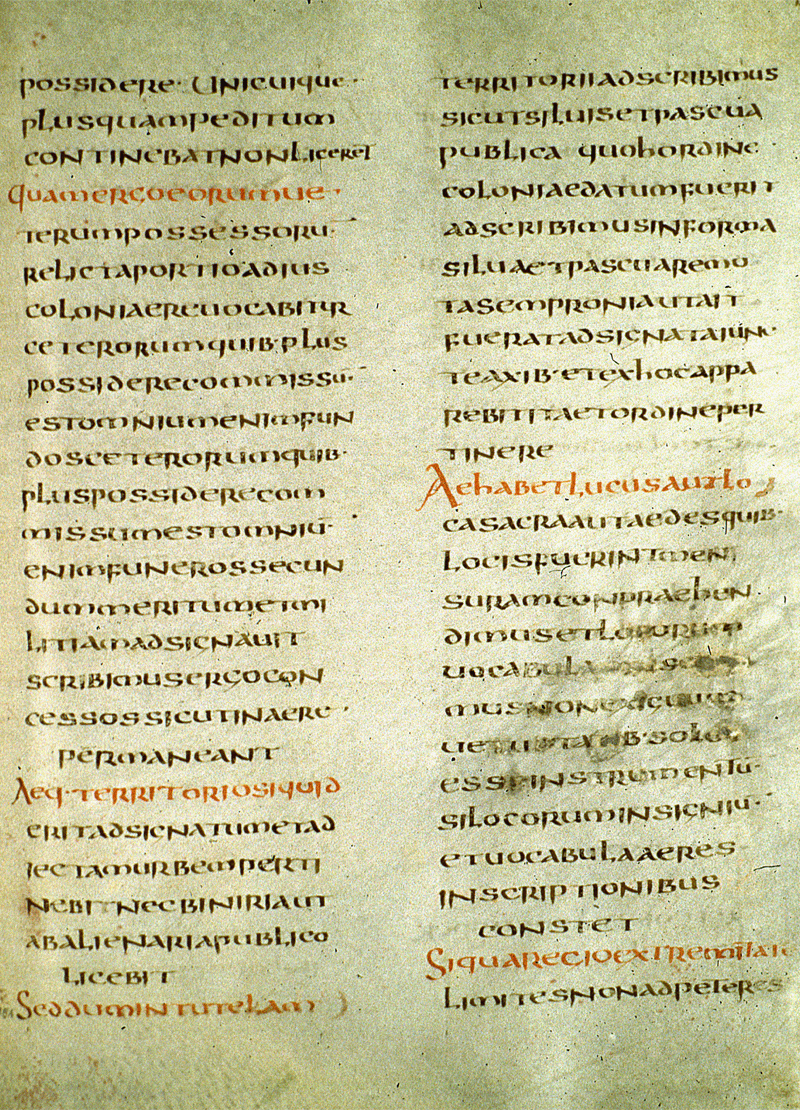 possidere· Unicuique·
plusquampeditum
continebatnonliceret
quamergoeorumue·
terumpossessoru·
relictaportioadius
coloniaereuocabitur
ceterorumquib·plus
possiderecommissu·
estomniumenimfun
dosceterorumquib·
pluspossiderecom
missumestomniu·
enimfunerossecun
dummeritumetmi
litiamadsignauit
scribimusergocon
cessossicutinaere·
permaneant
Aeq·territoriosiquid
eritadsignatumetad
iectamurbemperti
nebitnecbiniriaut
abalienariapublico
licebit
Seddumintutelam
territoriiadscribimus
sicutsiluisetpascua
publica quohordine·
coloniaedatumfuerit
adscribimusinforma
siluaetpascuaremo
tasemproniautait
fueratadsignataiunc·
teaxib·etexhocappa
rebititaetordineper
tinere
Aehabetlucusautlo
casacraautaedesquib·
locisfuerintmen
suramconpraehen
dimusetlocorum
uocabula
musnonexiguum
uetustatib·solet
esseinstrumentu·
silocoruminsigniu·
etuocabulaaeres
inscriptionibus
constet
Siquaregioextremitati
limitesnonadpeteres